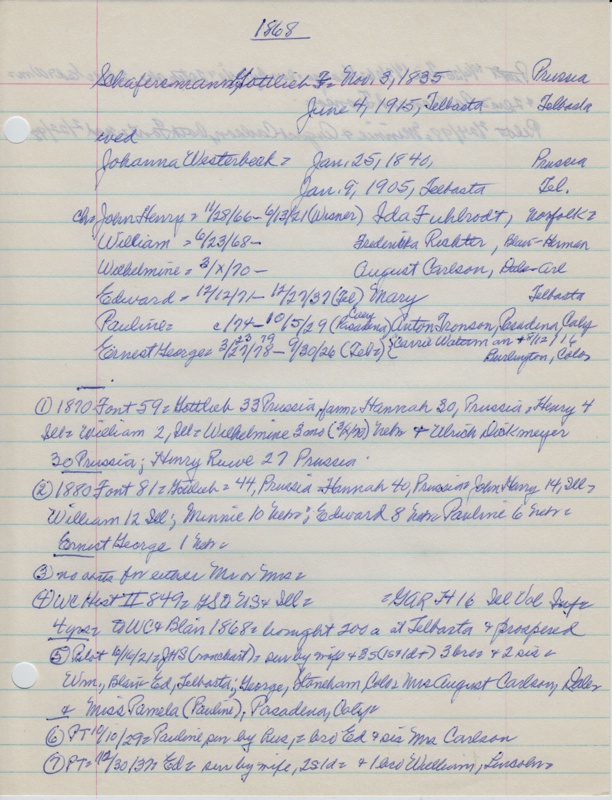 1868
Schafersmann, Gottlieb F = Nov. 3, 1835 Prussia
June 4, 1915, Telbasta Telbasta
wed
Johanna Westerbeck = Jan. 25, 1840, Prussia
Jan. 9, 1905, Telbasta Tel.
Chn John Henry = 11/28/66 - 6/13/21 (Wisner) Ida Fuhlrodt, Norfolk =
William = 6/23/68 - Frederika Rishter, Blair-Herman
Wilhelmine = 3/x/70 - August Carlson,
Edward = 12/12/71 - 12/27/37 (Tel) Mary Telbasta
Pauline = c/74 - 10/5/29 (Pasadena, Caly) Anton Tronson, Pasadena, Caly
Ernest George = 3/27/78 - 9/30/26 (Tel =) {Carrie Waterman + 9/12/16
23 79 Burlington, Colo
① 1870 Font 59 = Gottlieb 33 Prussia, farm = Hannah 30, Prussia, Henry 4
Ill = William 2, Ill = Wilhelmine 3 mo (3/x/70) Nebr + Ulrich Dickmeyer
30 Prussia; Henry Ruwe 27 Prussia
② 1880 Font 81 = Gottlieb = 44, Prussia = Hannah 40, Prussia = John Henry 14, Ill =
William 12 Ill; Minnie 10 Nebr; Edward 8 Nebr = Pauline 6 Nebr =
Ernest George 1 Nebr =
③ no obits for either Mr or Mrs =
④ WC Hist II 849 = GSO US & Ill = = GAR H 16 Ill Vol Inf =
4 yrs = to WC & Blair 1868 = bought 200 a at Telbasta & prospered
⑤ Pilot 6/16/21 = JHS = surv by wife + 3S (1st d+) 3 bros + 2 sis =
Wm., Blair = Ed, Telbasta; George, Stoneham, Colo = Mrs August Carlson,
& Miss Pamela (Pauline), Pasadena, Caly =
⑥ PT 10/10/29 = Pauline surv by Hus, = bro Ed & sis Mrs Carlson
⑦ PT = 12/30/37 = Ed = surv by wife, 2S 1d = + 1 bro William, Lincoln =